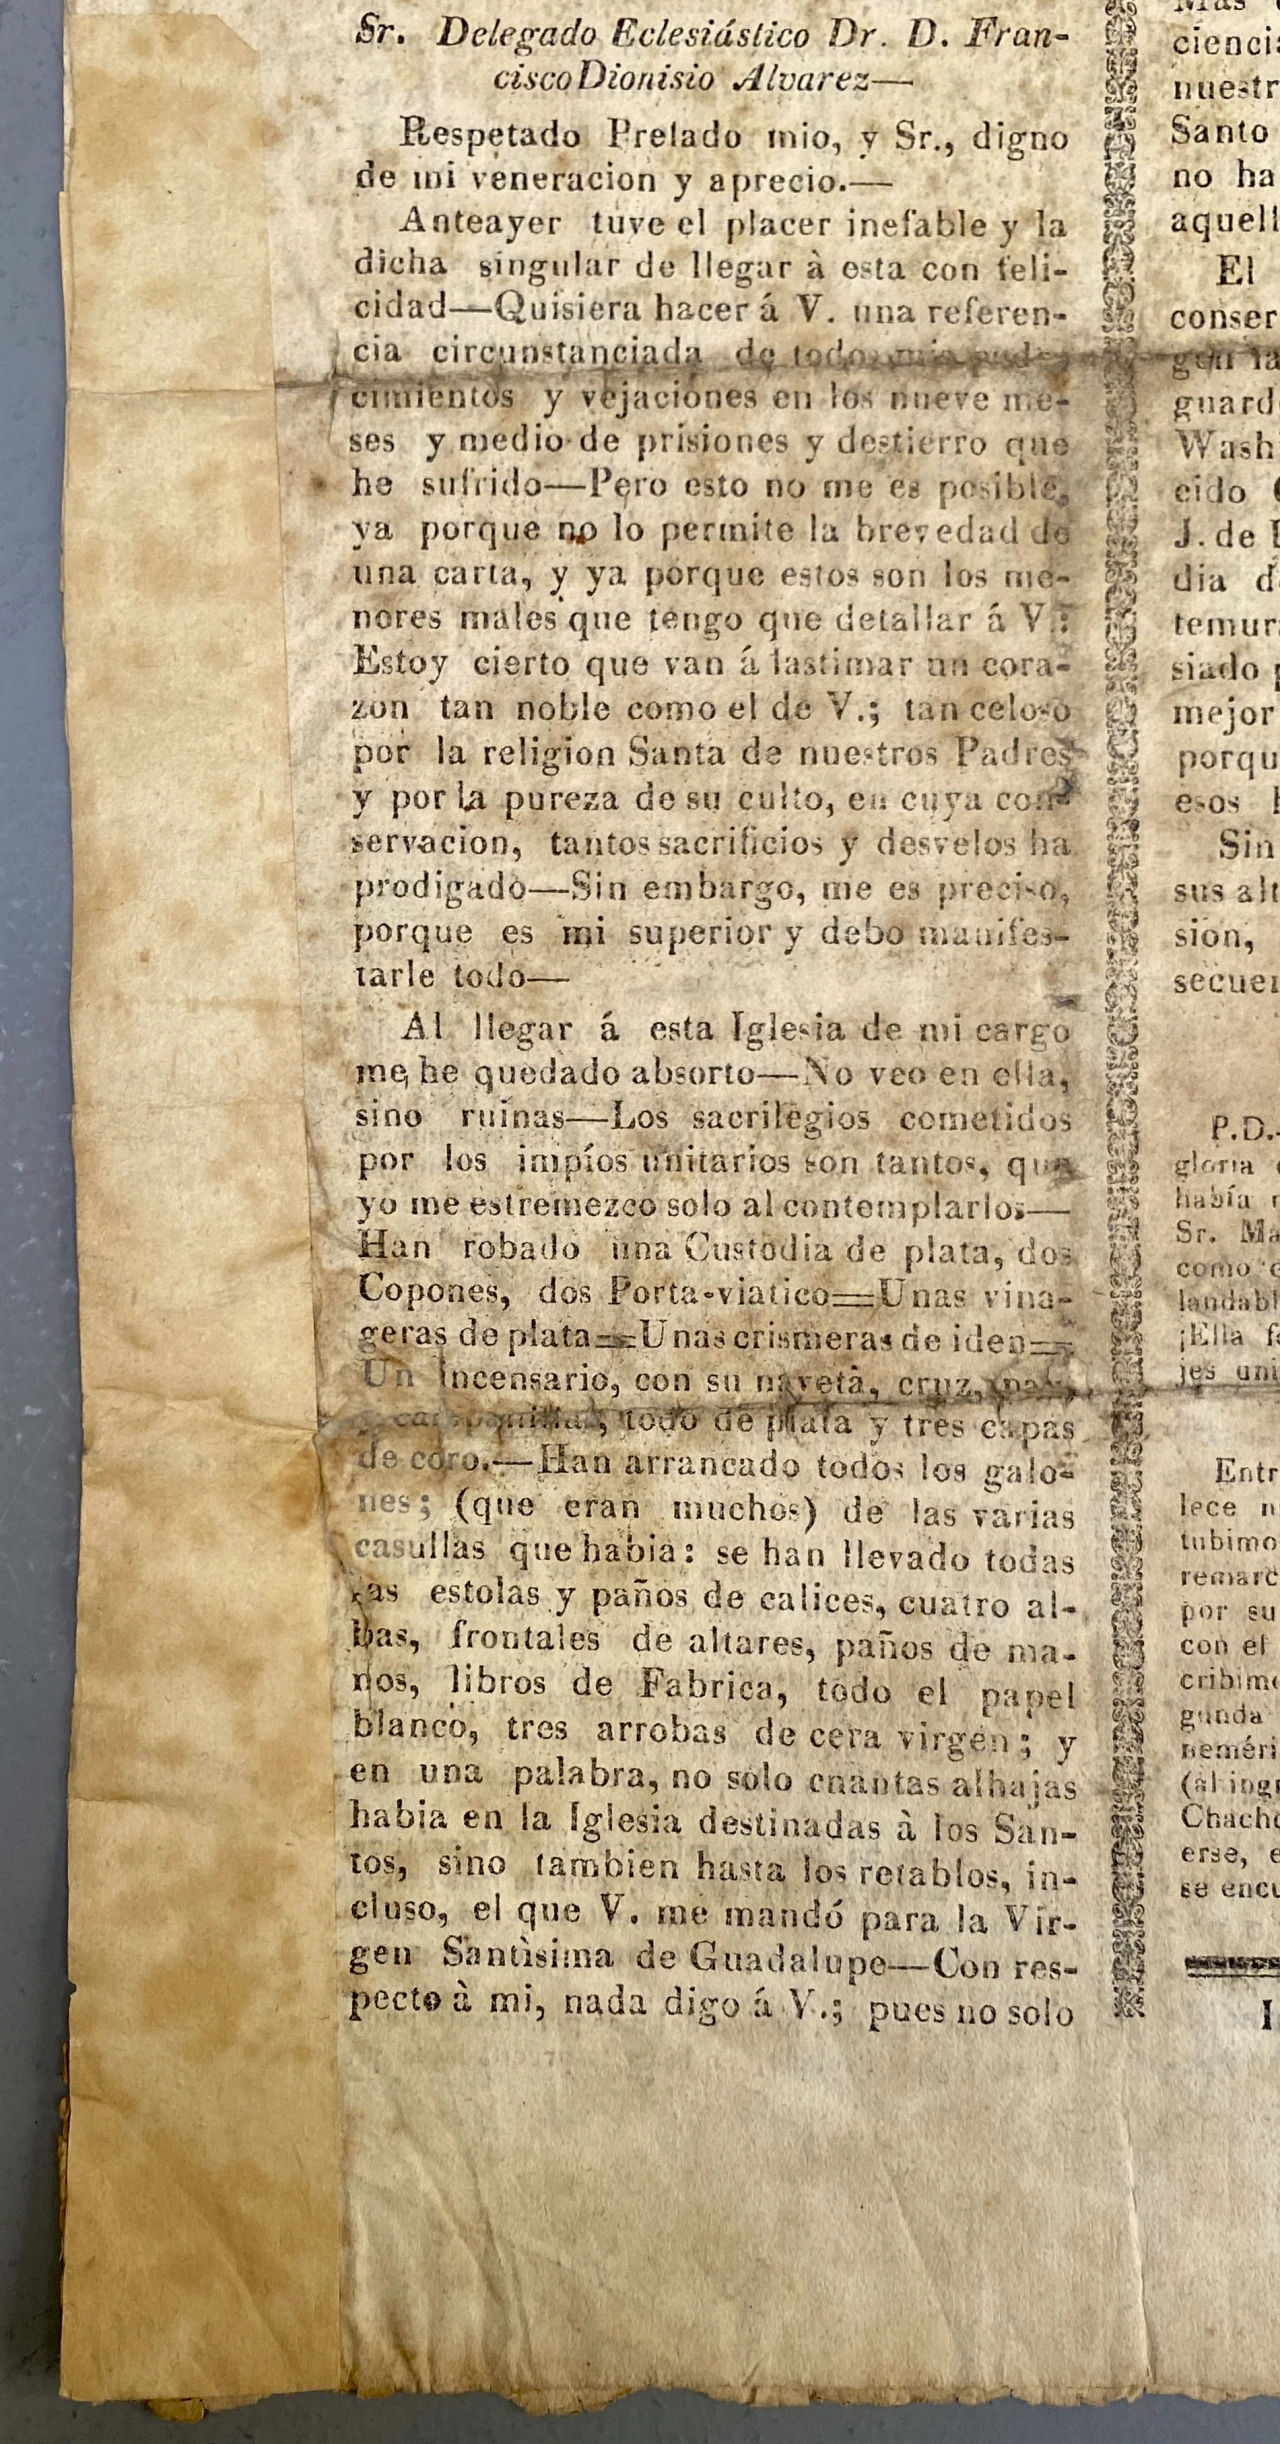 Sr. Delegado Eclesiástico Dr. D. Fran-
cisco Dionisio Alvarez—
Respetado Prelado mio, y Sr., digno
de mi veneracion y aprecio.—
Anteayer tuve el placer inefable y la
dicha singular de llegar à esta con feli-
cidad—Quisiera hacer á V. una referen-
cia circunstanciada de todos mis pade-
cimientos y vejaciones en los nueve me-
ses y medio de prisiones y destierro que
he sufrido—Pero esto no me es posible,
ya porque no lo permite la brevedad de
una carta, y ya porque estos son los me-
nores males que tengo que detallar á V.:
Estoy cierto que van á lastimar un cora-
zon tan noble como el de V.; tan celoso
por la religion Santa de nuestros Padres
y por la pureza de su culto, en cuya con-
servacion, tantos sacrificios y desvelos ha
prodigado—Sin embargo, me es preciso,
porque es mi superior y debo manifes-
tarle todo—
Al llegar á esta Iglesia de mi cargo
me he quedado absorto—No veo en ella,
sino ruinas—Los sacrilegios cometidos
por los impíos unitarios son tantos, que
yo me estremezco solo al contemplarlos—
Han robado una Custodia de plata, dos
Copones, dos Porta-viatico=Unas vina-
geras de plata=Unas crismeras de iden=
Un incensario, con su navetà, cruz,
y campanillas, todo de plata y tres capas
de coro.—Han arrancado todos los galo-
nes; (que eran muchos) de las varias
casullas que habia: se han llevado todas
las estolas y paños de calices, cuatro al-
bas, frontales de altares, paños de ma-
nos, libros de Fabrica, todo el papel
blanco, tres arrobas de cera virgen; y
en una palabra, no solo cuantas alhajas
habia en la Iglesia destinadas à los San-
tos, sino tambien hasta los retablos, in-
cluso, el que V. me mandó para la Vir-
gen Santìsima de Guadalupe—Con res-
pecto à mi, nada digo á V.; pues no solo
cienci
nuestr
Santo
no ha
aquell
El
conser
gen la
guard
Wash
cido
J. de
dia d
temur
siado p
mejor
porqu
esos
Sin
sus alt
sion,
secuen
P.D.-
gloria
había
Sr. Ma
como
laudabl
¡Ella f
jes uni
Entr
lece n
tubimo
remarc
por su
con el
cribimo
gunda
neméri
(al ingr
Chacho
erse, e
se encu